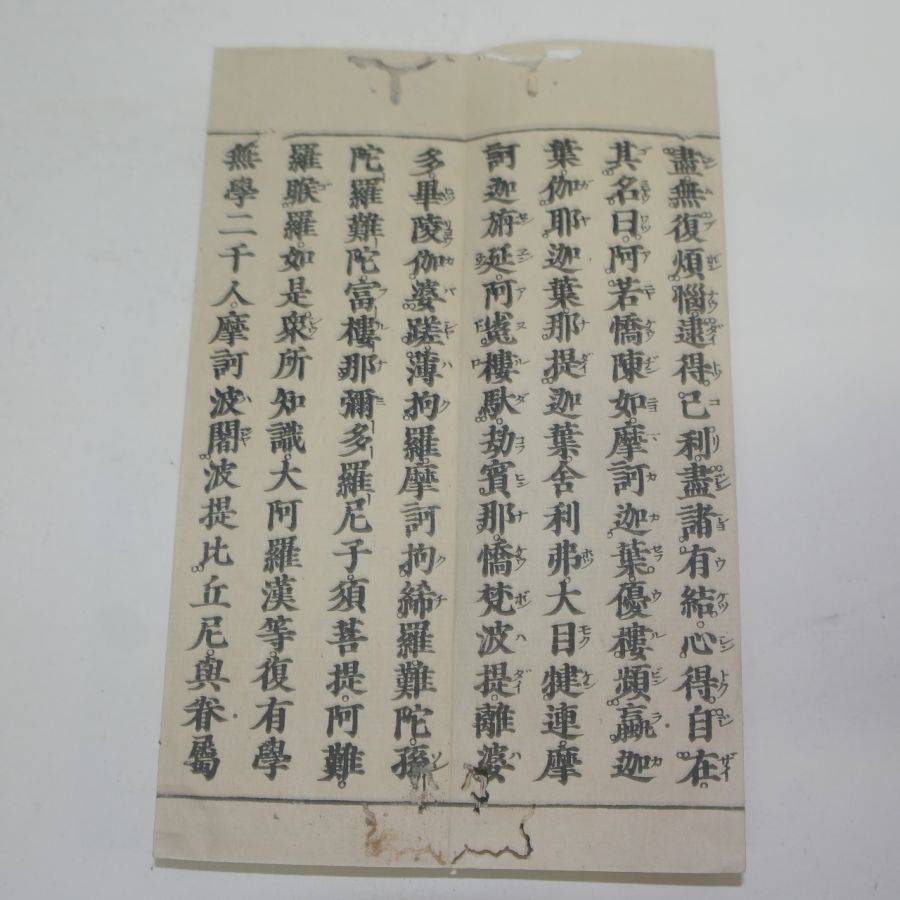 盡無復煩惱逮得己利盡諸有結心得自在
其名曰阿若憍陳如摩訶迦葉優樓頻蠃迦
葉伽耶迦葉那提迦葉舍利弗大目犍連摩
訶迦旃延阿㝹樓馱劫賓那憍梵波提離婆
多畢陵伽婆蹉薄拘羅摩訶拘絺羅難陀孫
陀羅難陀富樓那彌多羅尼子須菩提阿難
羅睺羅如是衆所知識大阿羅漢等復有學
無學二千人摩訶波闍波提比丘尼與眷屬